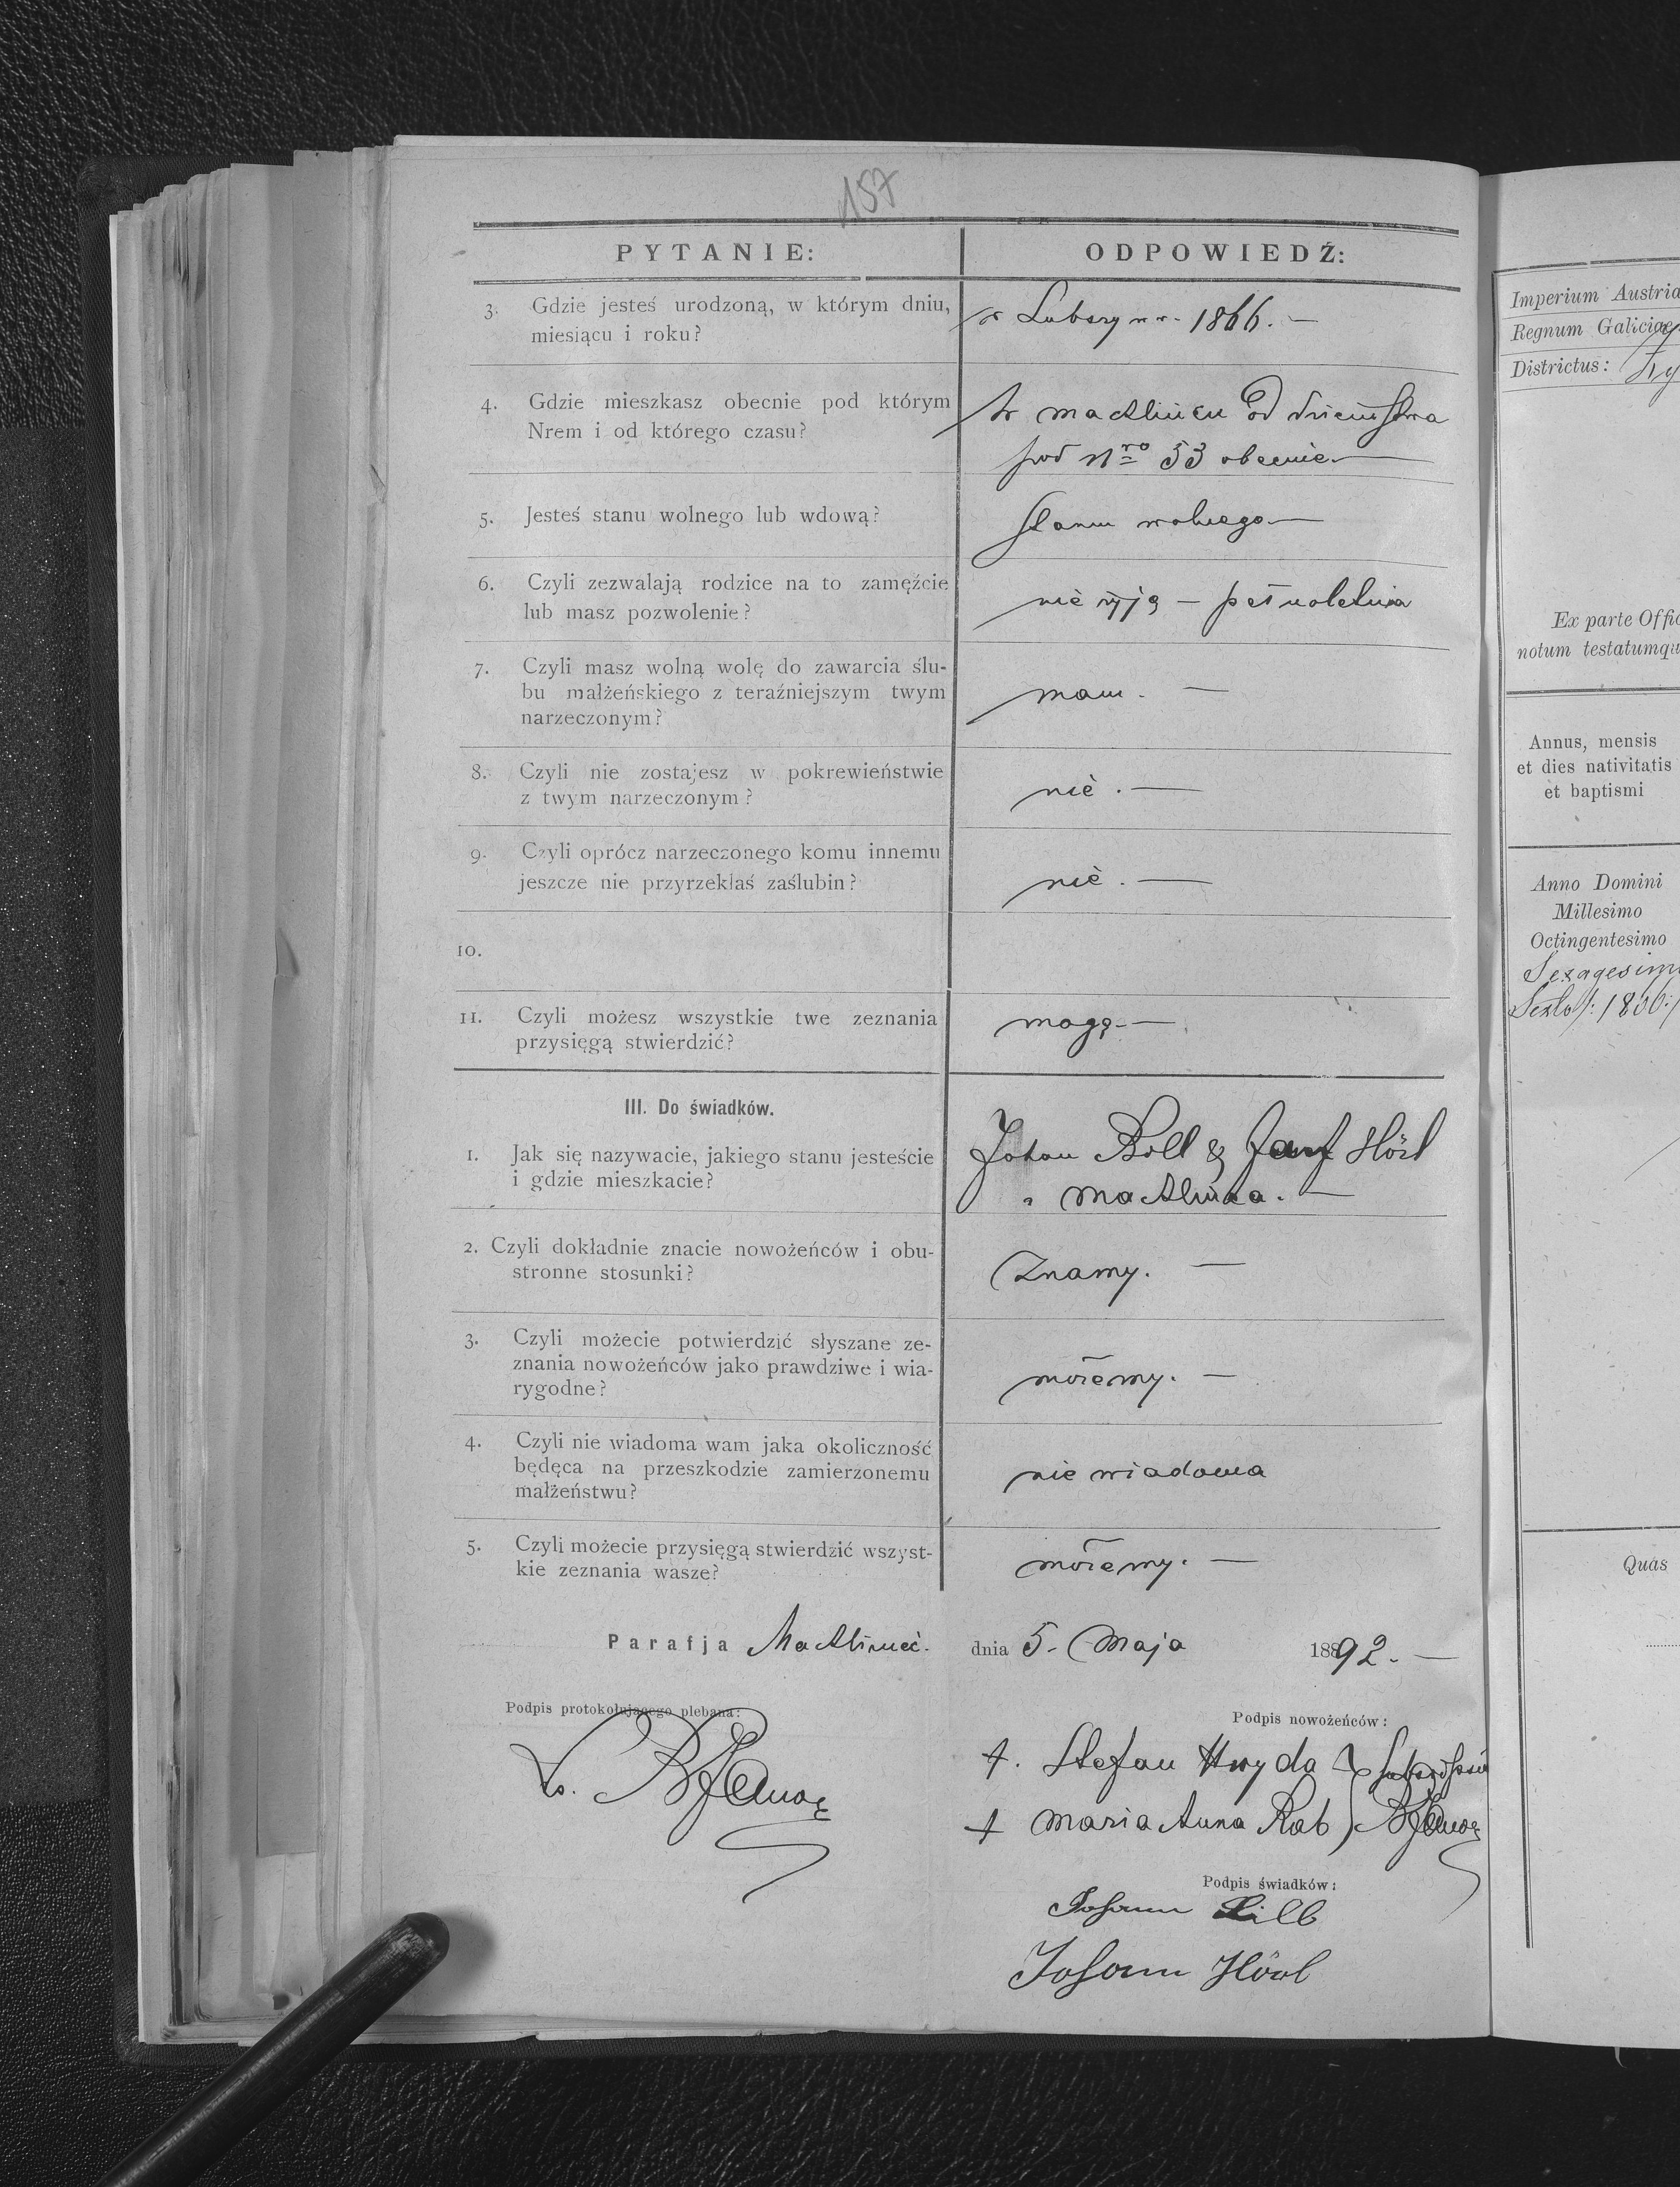 157
PYTANIE:
ODPOWIEDŹ:
3. Gdzie jesteś urodzoną, w którym dniu,
miesiącu i roku?
w Lubszy w r. 1866. —
4. Gdzie mieszkasz obecnie pod którym
Nrem i od którego czasu?
w Machlińcu od
pod Nro 53 obecnie. —
5. Jesteś stanu wolnego lub wdową?
stanu wolnego —
6. Czyli zezwalają rodzice na to zamęźcie
lub masz pozwolenie?
nie żyją — pełnoletnia
7. Czyli masz wolną wolę do zawarcia ślu-
bu małżeńskiego z teraźniejszym twym
narzeczonym?
mam. —
8. Czyli nie zostajesz w pokrewieństwie
z twym narzeczonym?
nie. —
9. Czyli oprócz narzeczonego komu innemu
jeszcze nie przyrzekłaś zaślubin?
nie. —
10.
11. Czyli możesz wszystkie twe zeznania
przysięgą stwierdzić?
mogę —
III. Do świadków.
1. Jak się nazywacie, jakiego stanu jesteście
i gdzie mieszkacie?
Johan & Hörl
z Machlińca. —
2. Czyli dokładnie znacie nowożeńców i obu-
stronne stosunki?
Znamy. —
3. Czyli możecie potwierdzić słyszane ze-
znania nowożeńców jako prawdziwe i wia-
rygodne?
możemy. —
4. Czyli nie wiadoma wam jaka okoliczność
będęca na przeszkodzie zamierzonemu
małżeństwu?
nie wiadoma
5. Czyli możecie przysięgą stwierdzić wszyst-
kie zeznania wasze?
możemy. —
Parafja Machliniec.
dnia 5. Maja 1892. —
Podpis protokołującego plebana:
Podpis nowożeńców:
†. Stefan Hryda
† Maria Anna Rab
Podpis świadków:
Johann
Johann Hörl
Imperium Austria
Regnum Galiciae
Districtus:
Ex parte Offic
notum testatumqu
Annus, mensis
et dies nativitatis
et baptismi
Anno Domini
Millesimo
Octingentesimo
Sexagesim
Sexto /: 1866 :/
Quas